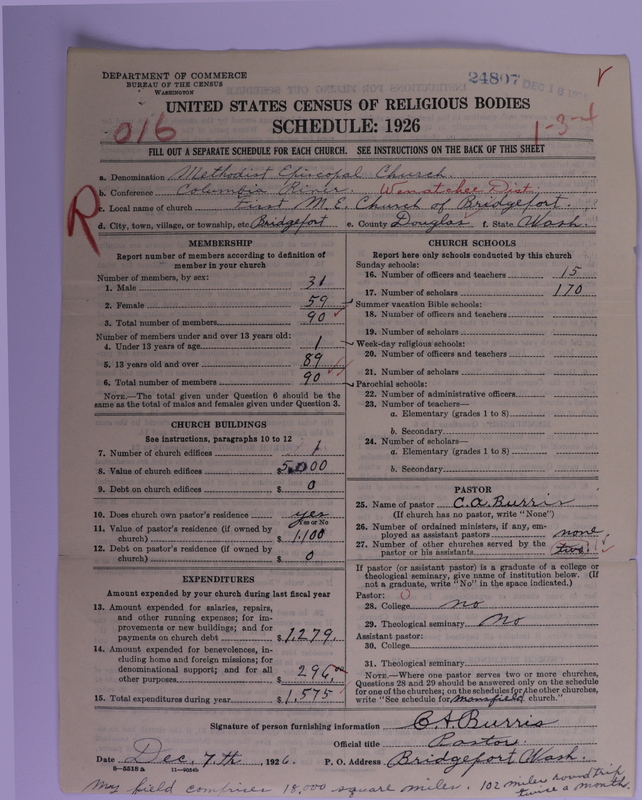 DEPARTMENT OF COMMERCE
BUREAU OF THE CENSUS
WASHINGTON
24807 DEC 1 8
UNITED STATES CENSUS OF RELIGIOUS BODIES
016
SCHEDULE: 1926
1-3-4
FILL OUT A SEPARATE SCHEDULE FOR EACH CHURCH. SEE INSTRUCTIONS ON THE BACK OF THIS SHEET
R
a. Denomination Methodist Episcopal Church.
b. Conference Columbia River. Wenatchee Dist.
c. Local name of church First M.E. Church of Bridgeport.
d. City, town, village, or township, etc. Bridgeport e. County Douglas f. State Wash.
MEMBERSHIP
Report number of members according to definition of
member in your church
Number of members, by sex:
1. Male 31
2. Female 59
3. Total number of members 90
Number of members under and over 13 years old:
4. Under 13 years of age 1
5. 13 years old and over 89
6. Total number of members 90
NOTE.—The total given under Question 6 should be the
same as the total of males and females given under Question 3.
CHURCH BUILDINGS
See instructions, paragraphs 10 to 12
7. Number of church edifices 1
8. Value of church edifices $5,000
9. Debt on church edifices $ 0
10. Does church own pastor's residence yes
Yes or No
11. Value of pastor's residence (if owned by
church) $ 1,100
12. Debt on pastor's residence (if owned by
church) $ 0
EXPENDITURES
Amount expended by your church during last fiscal year
13. Amount expended for salaries, repairs,
and other running expenses; for im-
provements or new buildings; and for
payments on church debt $1,279.
14. Amount expended for benevolences, in-
cluding home and foreign missions; for
denominational support; and for all
other purposes $ 296.00
15. Total expenditures during year $1,575.
CHURCH SCHOOLS
Report here only schools conducted by this church
Sunday schools:
16. Number of officers and teachers 15
17. Number of scholars 170
Summer vacation Bible schools:
18. Number of officers and teachers
19. Number of scholars
Week-day religious schools:
20. Number of officers and teachers
21. Number of scholars
Parochial schools:
22. Number of administrative officers
23. Number of teachers—
a. Elementary (grades 1 to 8)
b. Secondary
24. Number of scholars—
a. Elementary (grades 1 to 8)
b. Secondary
PASTOR
25. Name of pastor C.A. Burris
(If church has no pastor, write "None")
26. Number of ordained ministers, if any, em-
ployed as assistant pastors none
27. Number of other churches served by the
pastor or his assistants two
If pastor (or assistant pastor) is a graduate of a college or
theological seminary, give name of institution below. (If
not a graduate, write "No" in the space indicated.)
Pastor:
28. College no
29. Theological seminary No
Assistant pastor:
30. College
31. Theological seminary
NOTE.—Where one pastor serves two or more churches,
Questions 28 and 29 should be answered only on the schedule
for one of the churches; on the schedules for the other churches,
write "See schedule for Mansfield church."
Signature of person furnishing information C.A. Burris
Official title Pastor
Date Dec. 7th, 1926. P. O. Address Bridgeport Wash.
8—5518 a 11—9104b
My field comprises 18,000 square miles. 102 miles round trip
twice a month.